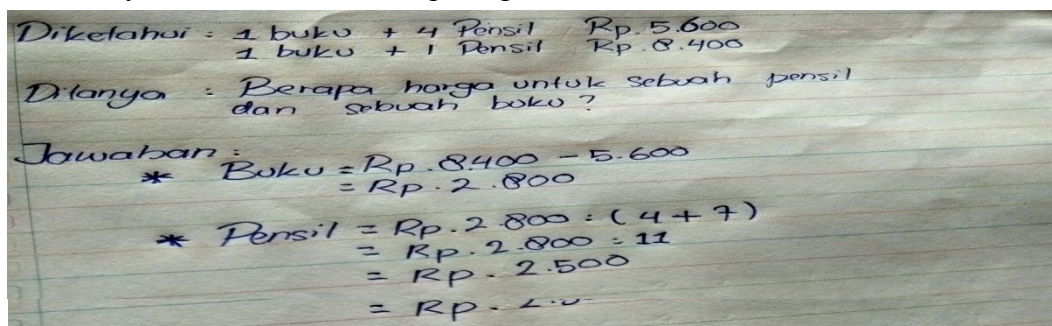 Diketahui : 1 buku + 4 Pensil Rp. 5.600
1 buku + 1 Pensil Rp. 8.400
Ditanya : Berapa harga untuk sebuah pensil
dan sebuah buku ?
Jawaban :
* Buku = Rp. 8.400 - 5.600
= Rp. 2.800
* Pensil = Rp. 2.800 : (4 + 7)
= Rp. 2.800 : 11
= Rp. 2.500
= Rp.